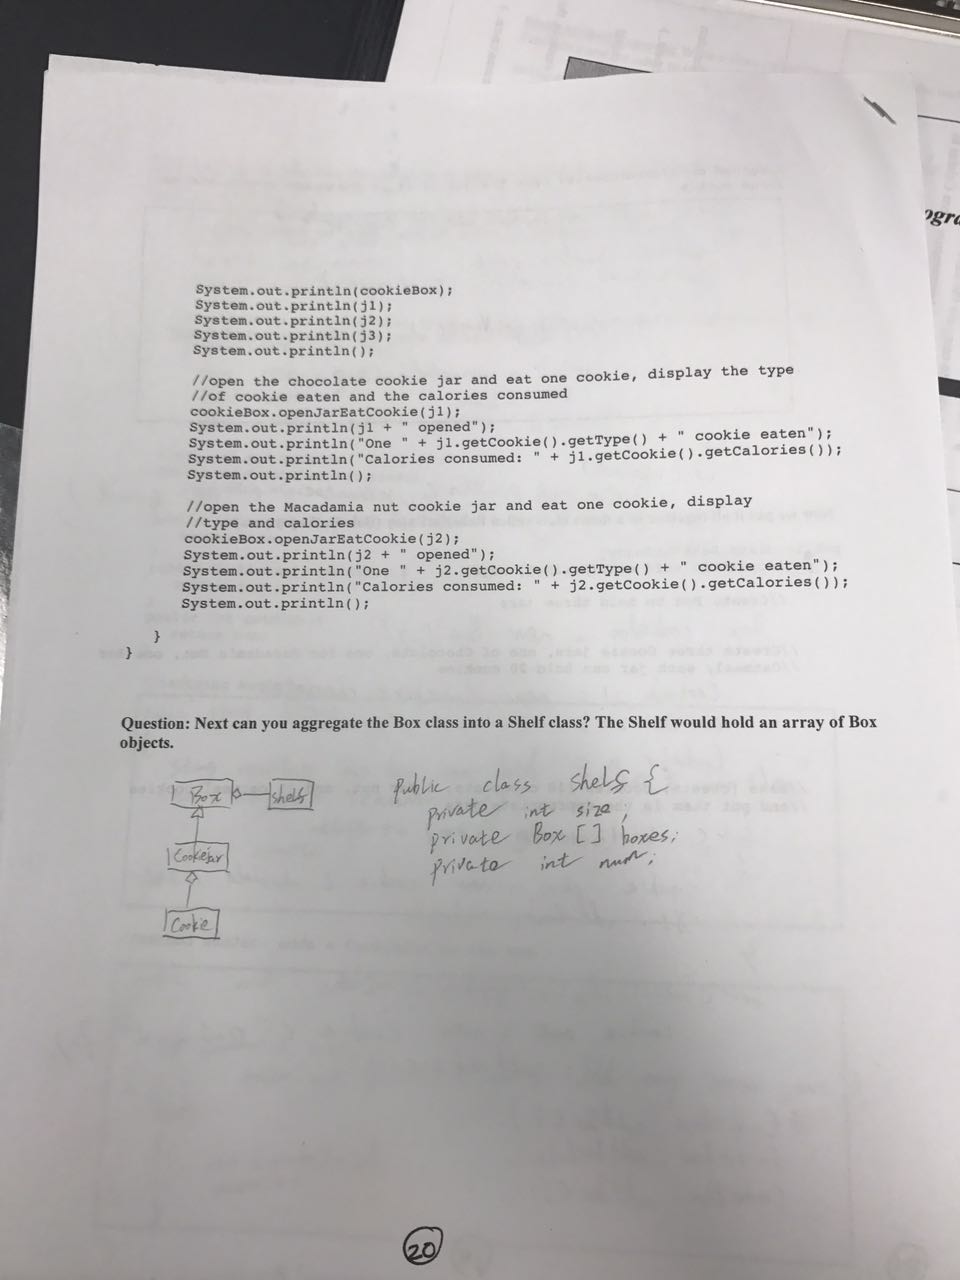 ogra
System.out.println(cookieBox);
System.out.println(j1);
System.out.println(j2);
System.out.println(j3);
System.out.println();
//open the chocolate cookie jar and eat one cookie, display the type
//of cookie eaten and the calories consumed
cookieBox.openJarEatCookie(j1);
System.out.println(j1 + " opened");
System.out.println("One " + j1.getCookie().getType() + " cookie eaten");
System.out.println("Calories consumed: " + j1.getCookie().getCalories());
System.out.println();
//open the Macadamia nut cookie jar and eat one cookie, display
//type and calories
cookieBox.openJarEatCookie(j2);
System.out.println(j2 + " opened");
System.out.println("One " + j2.getCookie().getType() + " cookie eaten");
System.out.println("Calories consumed: " + j2.getCookie().getCalories());
System.out.println();
}
}
Question: Next can you aggregate the Box class into a Shelf class? The Shelf would hold an array of Box
objects.
Box
shelf
CookieJar
Cookie
public class shelf {
private int size;
private Box [] boxes;
private int num;
20